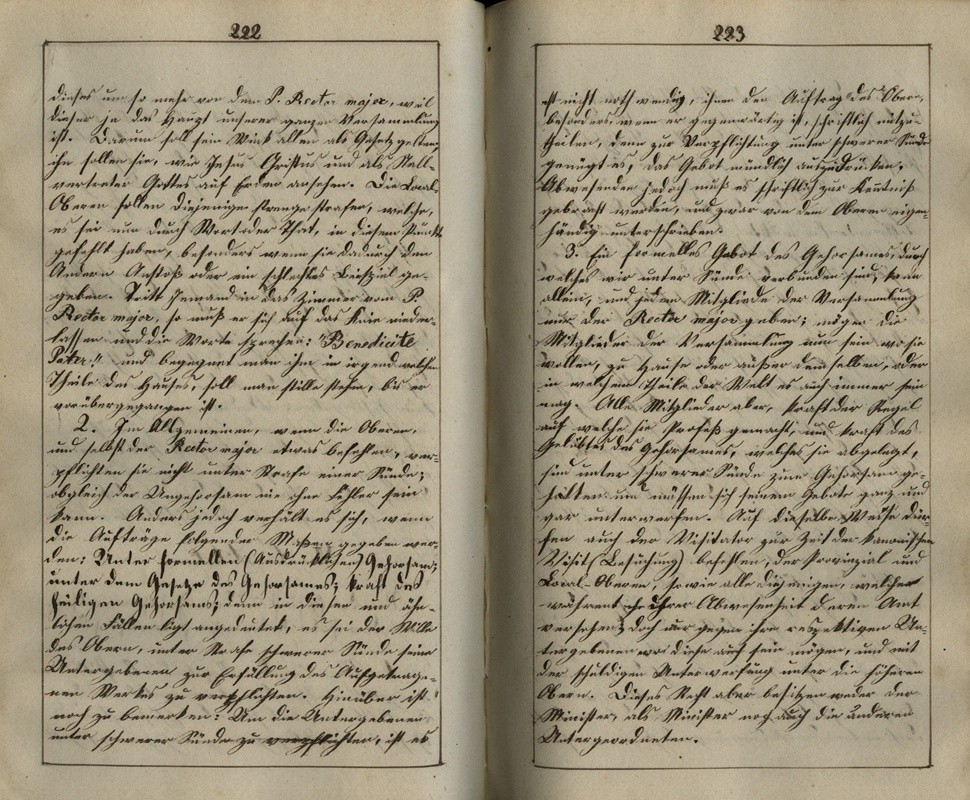 222
dieses um so mehr von dem P. Rector major, weil
dieser ja das Haupt unserer ganzen Versammlung
ist. Darum soll sein Wink allen als Gesetz gelten,
ihn sollen sie, wie Jesus Christus und als Stell-
vertreter Gottes auf Erden ansehen. Die Local-
Obern sollen diejenigen strenge strafen, welche,
es sei nun durch Wort oder That, in diesem Punkte
gefehlt haben, besonders wenn sie dadurch den
Andern Anstoß oder ein schlechtes Beispiel ge-
geben. Tritt Jemand in das Zimmer vom P.
Rector major, so muß er sich auf das Knie nieder-
lassen und die Worte sprechen: "Benedicite
Pater!" und begegnet man ihm in irgend welchem
Theile des Hauses, soll man stille stehen, bis er
vorübergegangen ist.
2. Im Allgemeinen, wenn die Oberen,
und selbst der Rector major etwas befehlen, ver-
pflichten sie nicht unter Strafe einer Sünde;
obgleich der Ungehorsam nie ohne Fehler sein
kann. Anders jedoch verhält es sich, wenn
die Aufträge folgender Maßen gegeben wer-
den: Unter formellen (Ausdrücklichen) Gehorsam;
unter dem Gesetze des Gehorsames; kraft des
heiligen Gehorsams; denn in diesen und ähn-
lichen Fällen ligt angedeutet, es sei der Wille
des Obern, unter Strafe schwerer Sünde seine
Untergebenen zur Erfüllung des Aufgetrage-
nen Werkes zu verpflichten. Hinüber ist
noch zu bemerken: Um die Untergebenen
unter schwerer Sünde zu verpflichten, ist es
223
ist nicht nothwendig, ihnen den Auftrag des Obern,
besonders wenn er gegenwärtig ist, schriftlich mitzu-
theilen, denn zur Verpflichtung unter schwerer Sünde
genügt es, das Gebot mündlich auszudrücken.
Abwesenden jedoch muß es schriftlich zur Kenntniß
gebracht werden, und zwar von dem Oberen eigen-
händig unterschrieben.
3. Ein formelles Gebot des Gehorsames, durch
welches wir unter Sünde verbunden sind, kann
allein, und jedem Mitgliede der Versammlung
nur der Rector major geben; mögen die
Mitglieder der Versammlung nun sein wo sie
wollen, zu Hause oder außer demselben, oder
in welchem Theile der Welt es auch immer sein
mag. Alle Mitglieder aber, kraft der Regel
auf welche sie Profeß gemacht, und kraft des
Gelübdes des Gehorsames, welches sie abgelegt,
sind unter schwerer Sünde zum Gehorsam ge-
halten und müssen sich seinem Gebote ganz und
gar unterwerfen. Auf dieselbe Weise dür-
fen auch der Visitator zur Zeit der kanonischen
Visit (Besuchung) befehlen, der Provinzial und
Local-Oberen, so wie alle diejenigen, welche
während ihrer Abwesenheit deren Amt
versehen; doch nur gegen ihre respektigen Un-
tergebenen wo diese auch sein mögen, und mit
der schuldigen Unterwerfung unter die höheren
Obern. Dieses Recht aber besitzen weder der
Minister, als Minister noch auch die anderen
Untergeordneten.